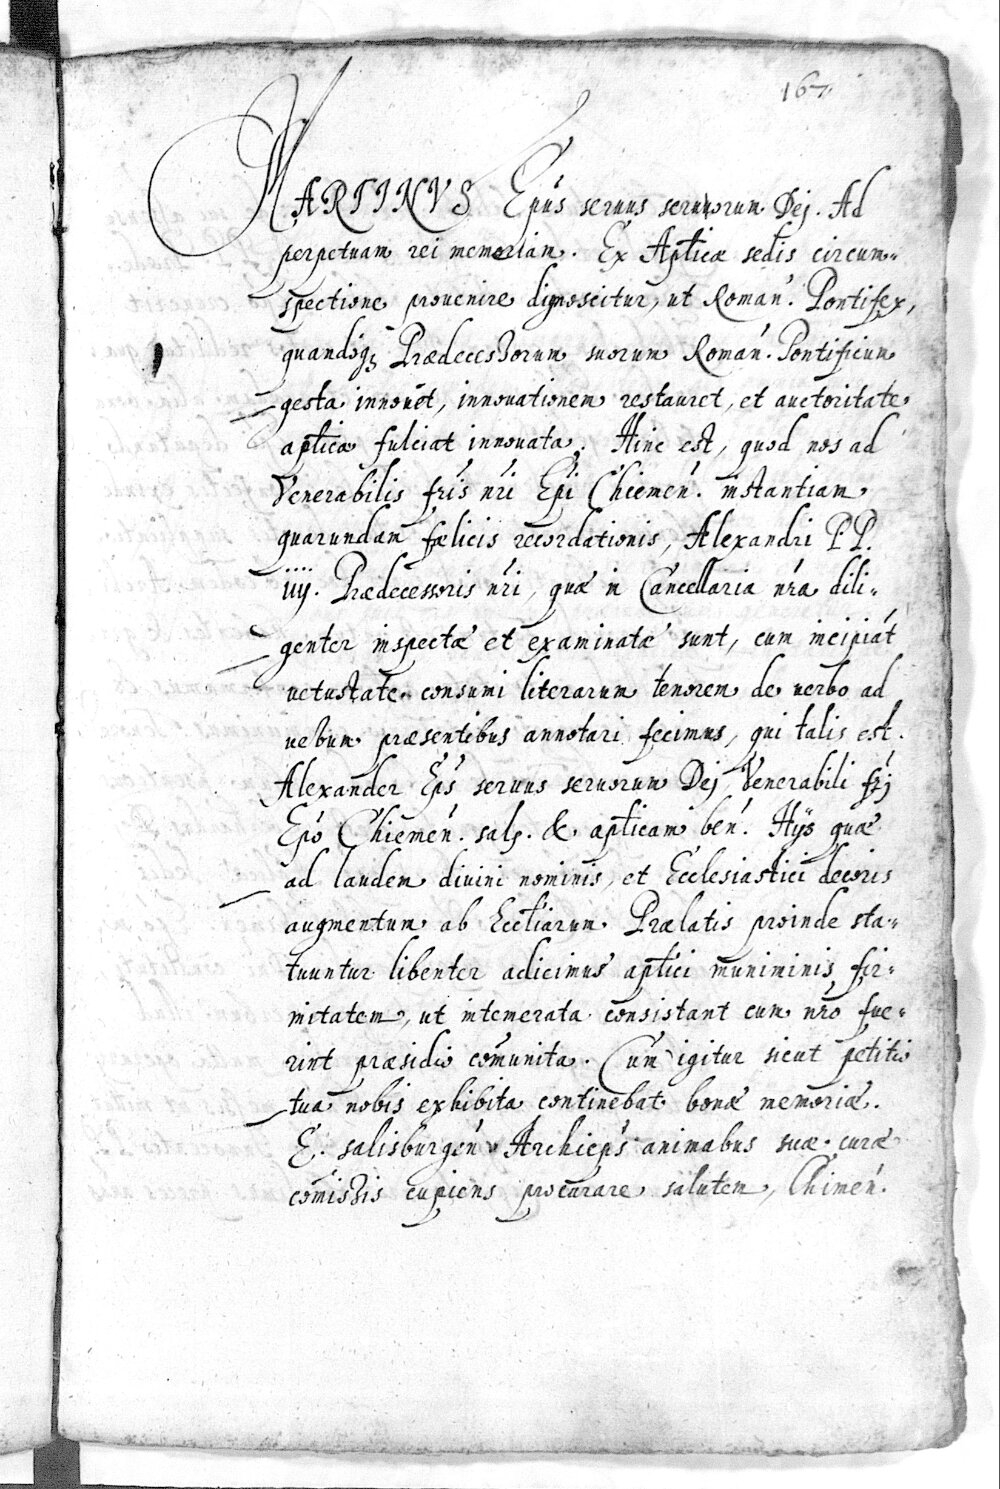 167.
MARTINVS Ep̃us seruus seruorum Dej. Ad
perpetuam rei memoriam. Ex Ap̃ticæ sedis circum-
spectione prouenire dignoscitur, ut Roman̄. Pontifex,
quandoq₃ Prædecessorum suorum Roman̄. Pontificum
gesta innouet, innouationem restauret, et auctoritate
ap̃tica fulciat innouata. Hinc est, quod nos ad
Venerabilis fr̄is nr̄i Ep̄i Chiemen̄. instantiam
quarundam fælicis recordationis, Alexandri P.P.
iiij. Prædecessoris nr̄i, quæ in Cancellaria nr̄a dili-
genter inspectæ et examinatæ sunt, cum incipiāt
uetustate consumi literarum tenorem de uerbo ad
uebum præsentibus annotari fecimus, qui talis est.
Alexander Ep̄s seruus seruorum Dej Venerabili fr̄j
Ep̄o Chiemen̄. sal. & ap̃ticam ben̄. Hijs quæ
ad laudem diuini nominis, et Ecclesiastici decoris
augmentum ab Eccl̄iarum Prælatis proinde sta-
tuuntur libenter adicimus ap̃tici muniminis fir-
mitatem, ut intemerata consistant cum nr̄o fue-
rint præsidio com̄unita. Cum igitur sicut petitio
tua nobis exhibita continebat bonæ memoriæ.
E. salisburgen̄ Archiep̄s animabus suæ curæ
com̄issis cupiens procurare salutem, Chimen̄.